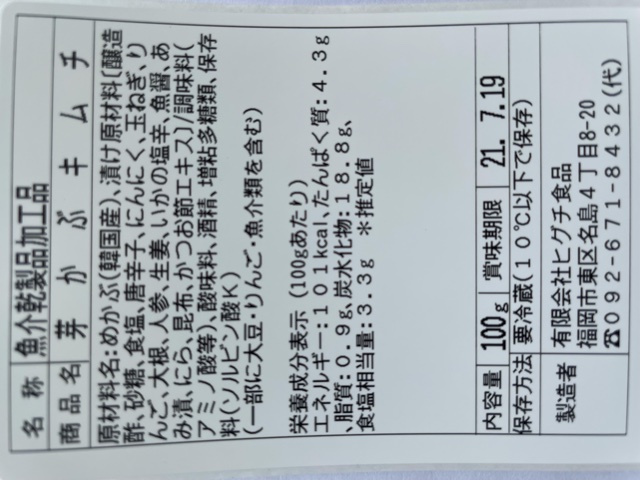 名称 魚介乾製品加工品
商品名 芽かぶキムチ
原材料名:めかぶ(韓国産)、漬け原材料〔醸造
酢、砂糖、食塩、唐辛子、にんにく、玉ねぎ、り
んご、大根、人参、生姜、いかの塩辛、魚醤、あ
み漬、にら、昆布、かつお節エキス〕/調味料(
アミノ酸等)、酸味料、酒精、増粘多糖類、保存
料(ソルビン酸K)
(一部に大豆・りんご・魚介類を含む)
栄養成分表示(100gあたり)
エネルギー:101kcal、たんぱく質:4.3g
、脂質:0.9g、炭水化物:18.8g、
食塩相当量:3.3g *推定値
内容量 100g 賞味期限 21.7.19
保存方法 要冷蔵(10℃以下で保存)
製造者 有限会社ヒグチ食品
福岡市東区名島4丁目8-20
☎092-671-8432(代)